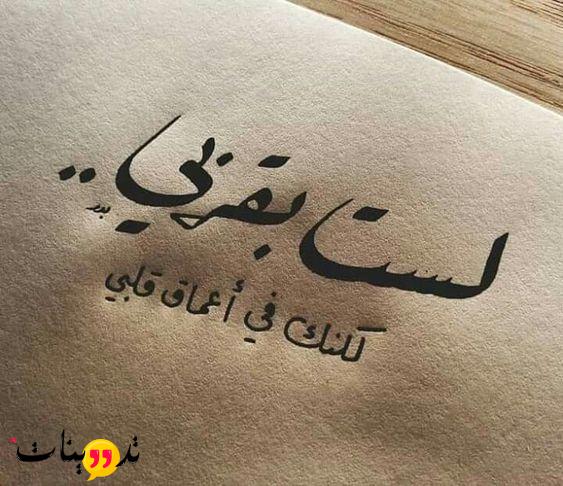 لست بقربي ..
بدر
لكنك في أعماق قلبي
تدوينات